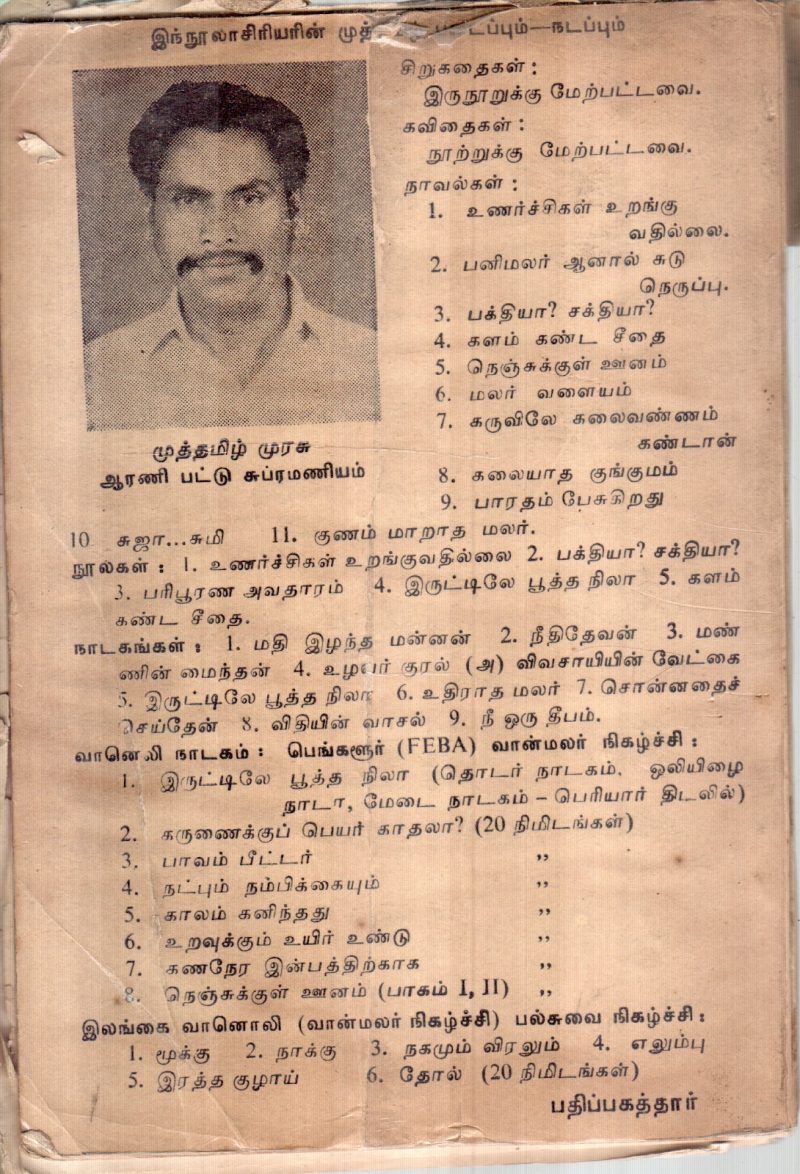 இந்நூலாசிரியரின் நடப்பும்
சிறுகதைகள் :
இருநூறுக்கு மேற்பட்டவை.
கவிதைகள் :
நூற்றுக்கு மேற்பட்டவை.
நாவல்கள் :
1. உணர்ச்சிகள் உறங்கு
வதில்லை.
2. பனிமலர் ஆனால் சுடு
நெருப்பு.
3. பக்தியா? சக்தியா?
4. களம் கண்ட சீதை
5. நெஞ்சுக்குள் ஊனம்
6. மலர் வளையம்
7. கருவிலே கலைவண்ணம்
கண்டான்
8. கலையாத குங்குமம்
9. பாரதம் பேசுகிறது
முத்தமிழ் முரசு
ஆரணி பட்டு சுப்ரமணியம்
10 சுஜா...சுமி 11. குணம் மாறாத மலர்.
நூல்கள் : 1. உணர்ச்சிகள் உறங்குவதில்லை 2. பக்தியா? சக்தியா?
3. பரிபூரண அவதாரம் 4. இருட்டிலே பூத்த நிலா 5. களம்
கண்ட சீதை.
நாடகங்கள் : 1. மதி இழந்த மன்னன் 2. நீதிதேவன் 3. மண்
ணின் மைந்தன் 4. உழவர் குரல் (அ) விவசாயியின் வேட்கை
5. இருட்டிலே பூத்த நிலா 6. உதிராத மலர் 7. சொன்னதைச்
செய்தேன் 8. விதியின் வாசல் 9. நீ ஒரு தீபம்.
வானெலி நாடகம் : பெங்களூர் (FEBA) வான்மலர் நிகழ்ச்சி :
1. இருட்டிலே பூத்த நிலா (தொடர் நாடகம். ஒலியிழை
நாடா, மேடை நாடகம் – பெரியார் திடலில்)
2. கருணைக்குப் பெயர் காதலா? (20 நிமிடங்கள்)
3. பாவம் பீட்டர் ,,
4. நட்பும் நம்பிக்கையும் ,,
5. காலம் கனிந்தது ,,
6. உறவுக்கும் உயிர் உண்டு ,,
7. கணநேர இன்பத்திற்காக ,,
8. நெஞ்சுக்குள் ஊனம் (பாகம் I, II) ,,
இலங்கை வானொலி (வான்மலர் நிகழ்ச்சி) பல்சுவை நிகழ்ச்சி :
1. மூக்கு 2. நாக்கு 3. நகமும் விரலும் 4. எலும்பு
5. இரத்த குழாய் 6. தோல் (20 நிமிடங்கள்)
பதிப்பகத்தார்